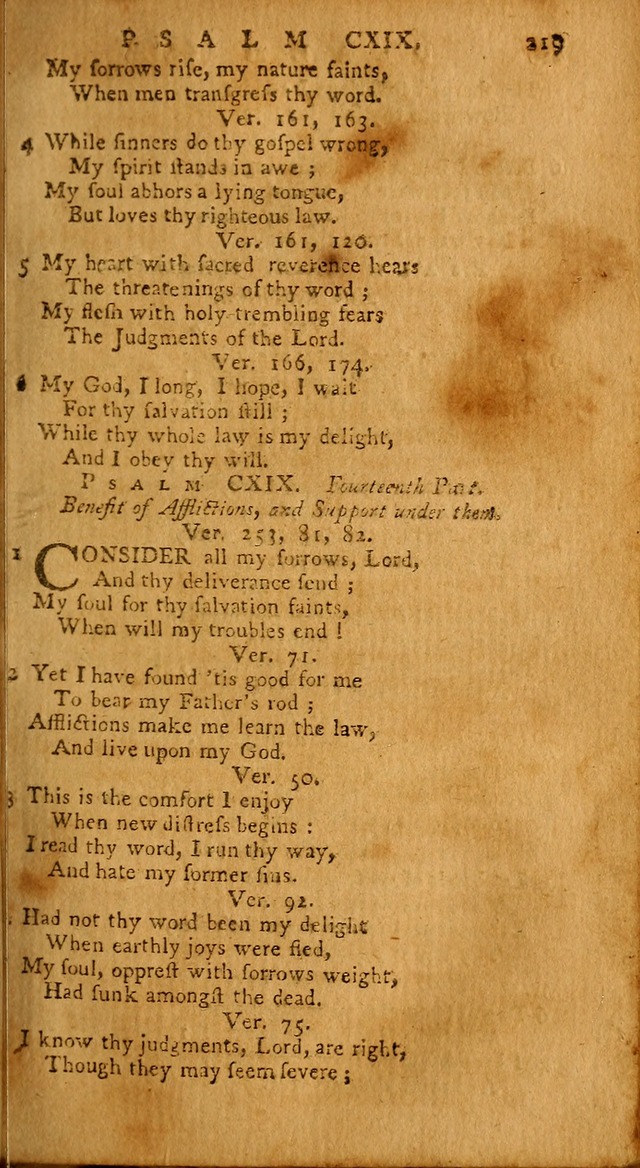 PSALM CXIX. 219
My ſorrows riſe, my nature faints,
When men tranſgreſs thy word.
Ver. 161, 163.
4 While ſinners do thy goſpel wrong,
My ſpirit ſtands in awe ;
My ſoul abhors a lying tongue,
But loves thy righteous law.
Ver. 161, 120.
5 My heart with ſacred reverence hears
The threatenings of thy word ;
My fleſh with holy trembling fears
The Judgments of the Lord.
Ver. 166, 174.
6 My God, I long, I hope, I wait
For thy ſalvation ſtill ;
While thy whole law is my delight,
And I obey thy will.
PSALM CXIX. Fourteenth Part.
Benefit of Afflictions, and Support under them.
Ver. 253, 81, 82.
1 CONSIDER all my ſorrows, Lord,
And thy deliverance ſend ;
My ſoul for thy ſalvation faints,
When will my troubles end !
Ver. 71.
2 Yet I have found 'tis good for me
To bear my Father's rod ;
Afflictions make me learn the law,
And live upon my God.
Ver. 50.
3 This is the comfort I enjoy
When new diſtreſs begins :
I read thy word, I run thy way,
And hate my former ſins.
Ver. 92.
Had not thy word been my delight
When earthly joys were fled,
My ſoul, oppreſt with ſorrows weight,
Had ſunk amongſt the dead.
Ver. 75.
I know thy judgments, Lord, are right,
Though they may ſeem ſevere ;